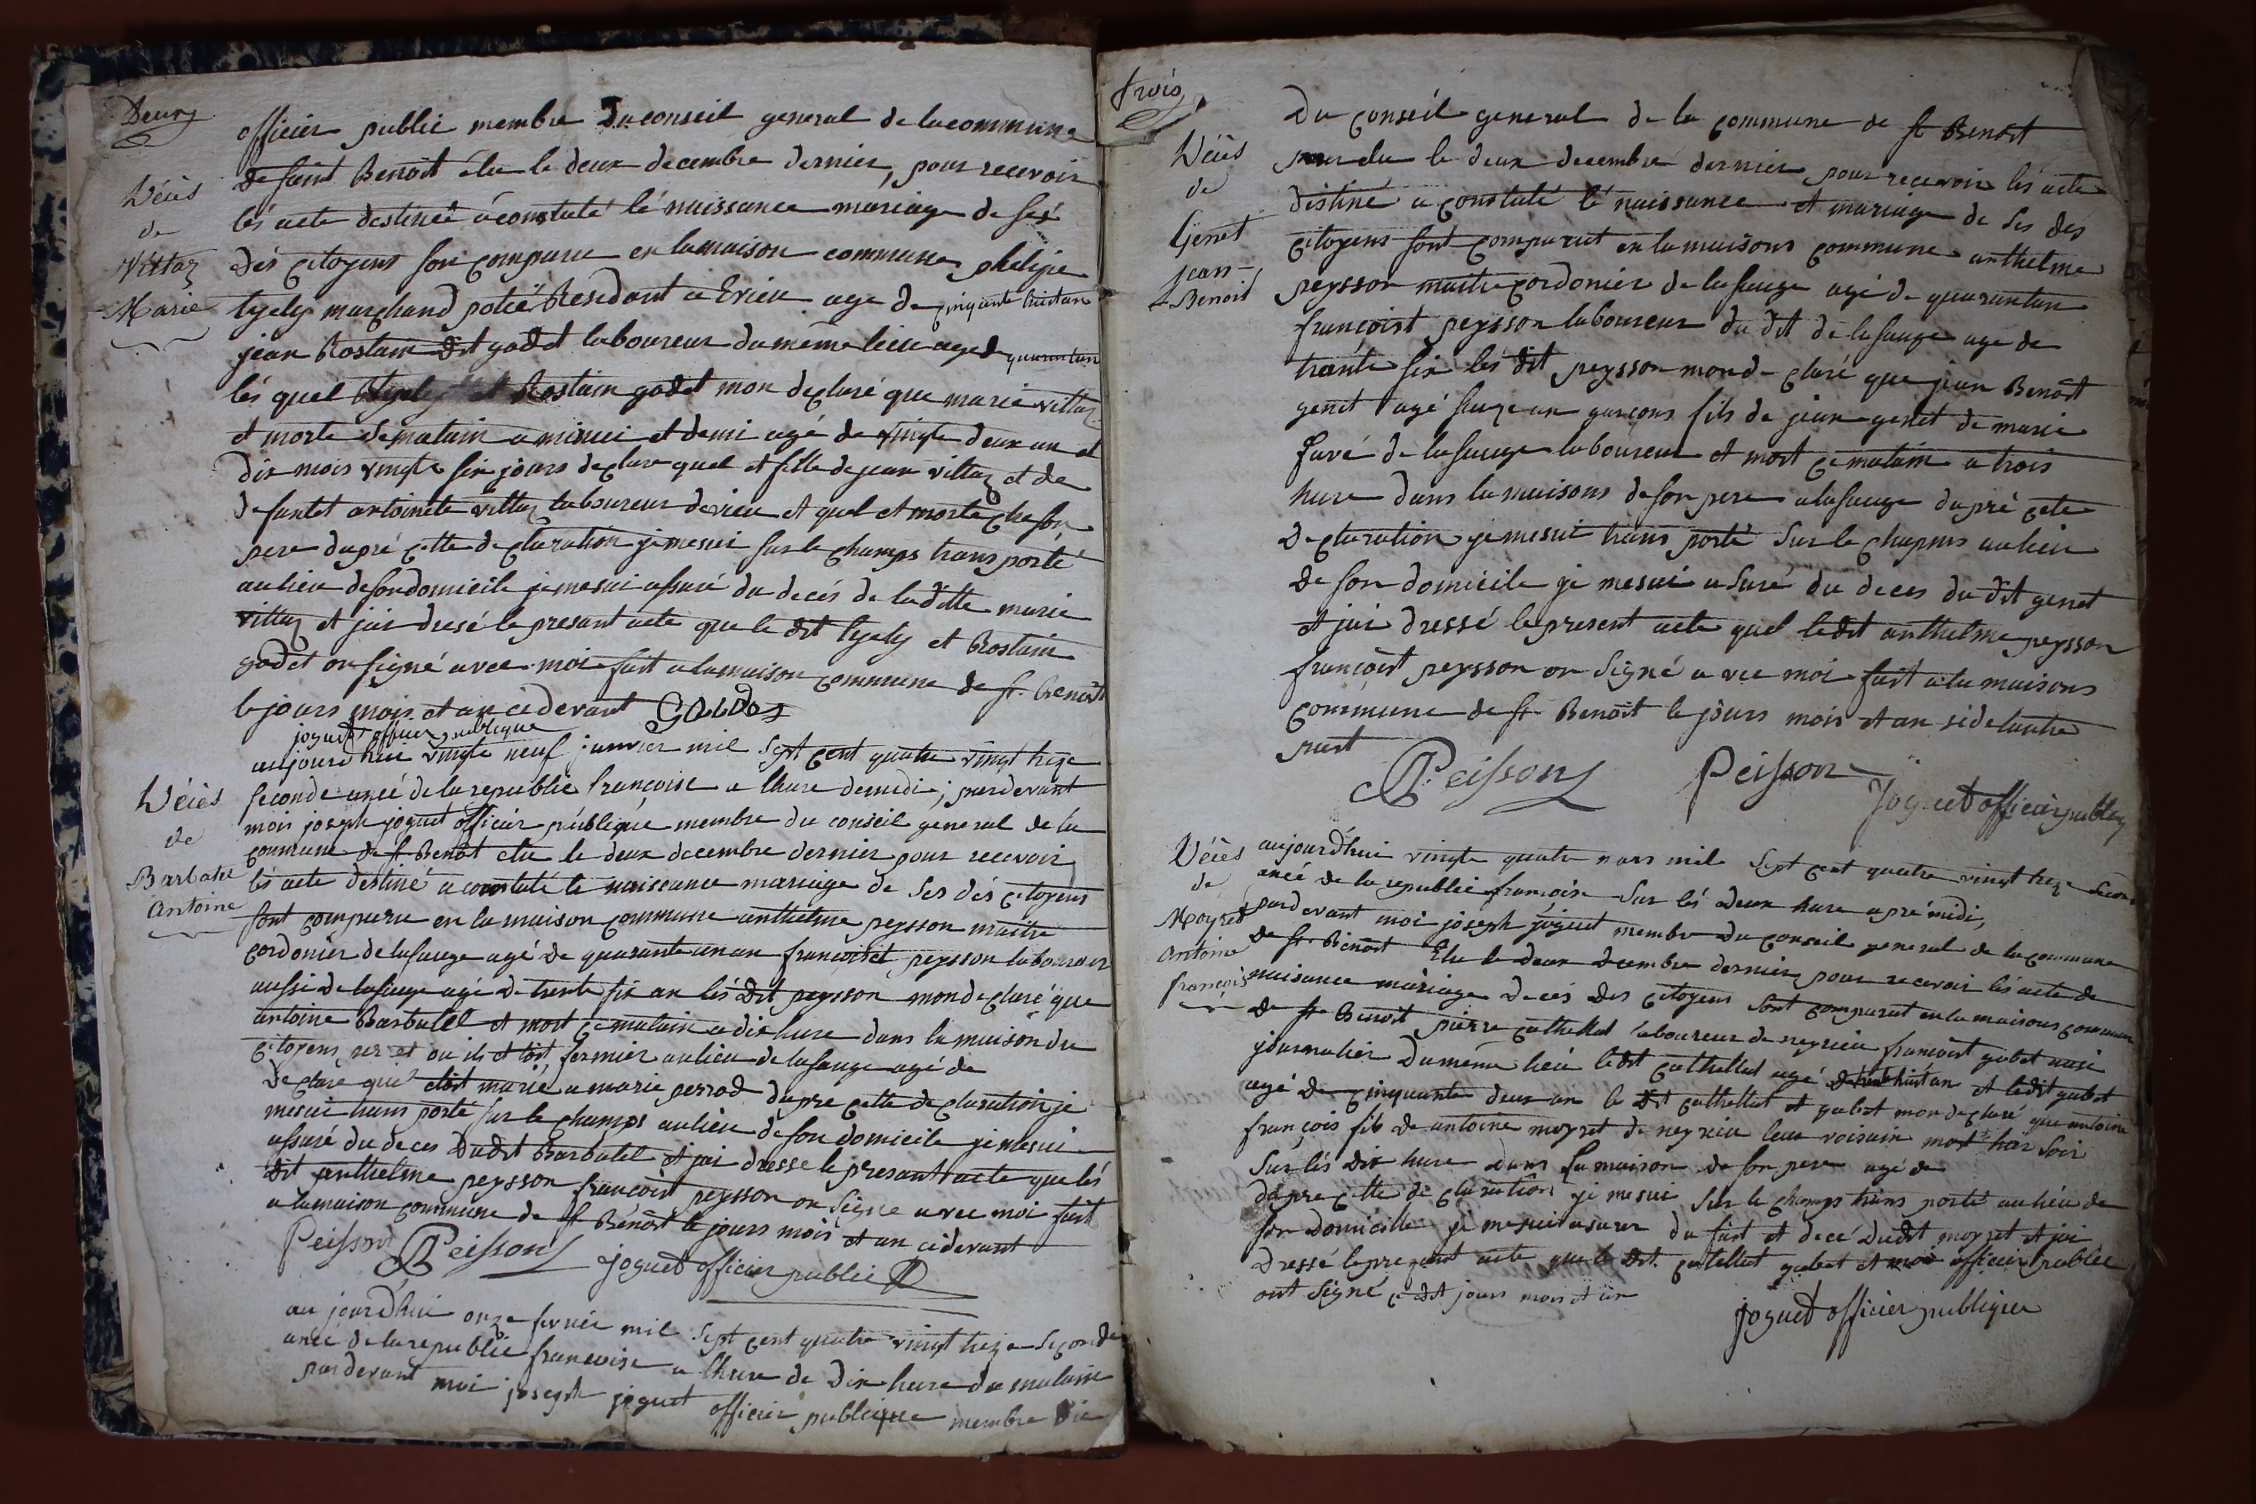 Deux
officier public membre du conseil general de la commune
de saint Benoit élu le deux decembre dernier, pour recevoir
lés acte destinée a constaté lé naissance mariage de sés
Décès
de
Villaz
Marie
dés citoyens son comparu en la maison commune, philipe
marchand Residant a Evieu age de
jean Rostain dit godet laboureur du même lieu age de
lés quel et Rostain godet mon declaré que marie villaz
et morte se matain a minui et demi agé de vingte deux an et
dix mois vingte six jours declare quel et fille de jean villaz et de
defuntet antoinete villaz laboureur devieu et quel et morte che son
pere dapré cette declaration je mesui sur le champs transporté
au lieu de son domicile je mesui assuré du decés de la ditte marie
villaz et jai dresé le presant acte que le dit et Rostain
godet on signé avec moi fait a la maison commune de st. Benoit
le jours mois et an cidevant
joguet officier publique
Décès
de
Barbatel
antoine
aujourd'hui vingte neuf janvier mil sept cent quatre vingt treze
seconde anée de la republic françoise a lhure demedi; pardevant
moi joseph joguet officier publique membre du conseil general de la
commune de st Benoit élu le deux decembre dernier pour recevoir
lés acte destiné a constaté lé naissance mariage de ses dés citoyens
sont comparu en la maison commune anthelme peysson maitre
cordonier de lasauge agé de quarante un an françoist peysson laboureur
aussi de lasauge agé de trente six an lés dit peysson mon declaré que
antoine Barbatel et mort ce matain a dix hure dans la maison du
citoyens ou ils et toit fermier au lieu de lasauge agé de
declaré que etoit marié a marie perrod dapre cette declaration je
mesui trans porté sur le champs au lieu de son domicile je mesui
assuré du deces dudit Barbatel et jai dresse le presant acte que lés
dit anthelme peysson françoist peysson on signe avec moi fait
a la maison commune de st Benoit le jours mois et an cidevant
Peisson Peisson joguet officier public
aujourd'hui onze fevrier mil sept cent quatre vingt treze seconde
anée de la republic françoise a lhure de dix hure du matain
pardevant moi joseph joguet officier publique membre
trois
Du conseil general de la commune de st Benoit
élu le deux decembre dernier pour recevoir lés acte
Décès
de
Genet
jean
Benoit
distiné a constaté lé naissance et mariage de ses des
citoyens sont comparut en la maisons commune anthelme
peysson maitre cordonier de lasauge agé de quarantun
françoist peysson laboureur du dit de lasauge age de
trante six lés dit peysson mon declaré que jean Benoit
genet agé an garcons fils de jean genet de marie
favé de lasauge laboureur et mort ce matain a trois
hure dans la maisons de son pere a lasauge dapré cete
declaration je mesui trans porté sur le champs au lieu
de son domicile je mesui asuré du deces du dit genet
et jai dressé le present acte quel ledit anthelme peysson
françoist peysson on signé avec moi fait a la maisons
commune de st Benoit le jours mois et an sidelautre
part
Peisson Peisson joguet officier public
Décès
de
Moyret
antoine
françois
aujourd'hui vingte quatre mars mil sept cent quatre vingt treze
anée de la republic françoise sur lés deux hure apré midi,
pardevant moi joseph joguet membre du conseil general de la commune
de st. Benoit Elu le deux decembre dernier pour recevoir lés acte de
naisance mariage decés des citoyens sont comparut en la maisons commune
de st Benoit pierre cathellat laboureur de neyrieu françoist gubet
journalier du même lieu ledit cathellat agé de an et ledit gubet
agé de cinquante deux an le dit cathellat et gubet mon declaré que antoine
françois fils de antoine moyret de neyrieu leur voisain mort hier soir
sur lés dix hure dans la maison de son pere agé de
dapre cette declaration je mesui sur le champs trans porté au lieu de
son domicille je mesui asurer du fait et decé dudit moyret et jai
dressé le present acte que le dit cathellat gubet et moi officier public
ont signé jours mois et an
joguet officier publique